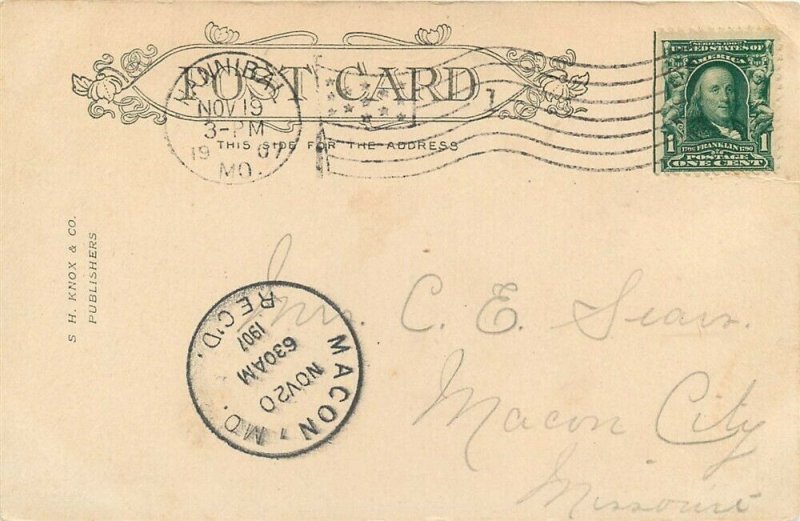 POST CARD
THIS SIDE FOR THE ADDRESS
HANNIBAL
NOV 19
3-PM
1907
MO.
SERIES 1902
UNITED STATES OF
AMERICA
1 1706 FRANKLIN 1790 1
POSTAGE
ONE CENT
S. H. KNOX & CO.
PUBLISHERS
MACON, MO.
NOV 20
630AM
1907
REC'D.
Mrs. C. E. Sears.
Macon City
Missouri